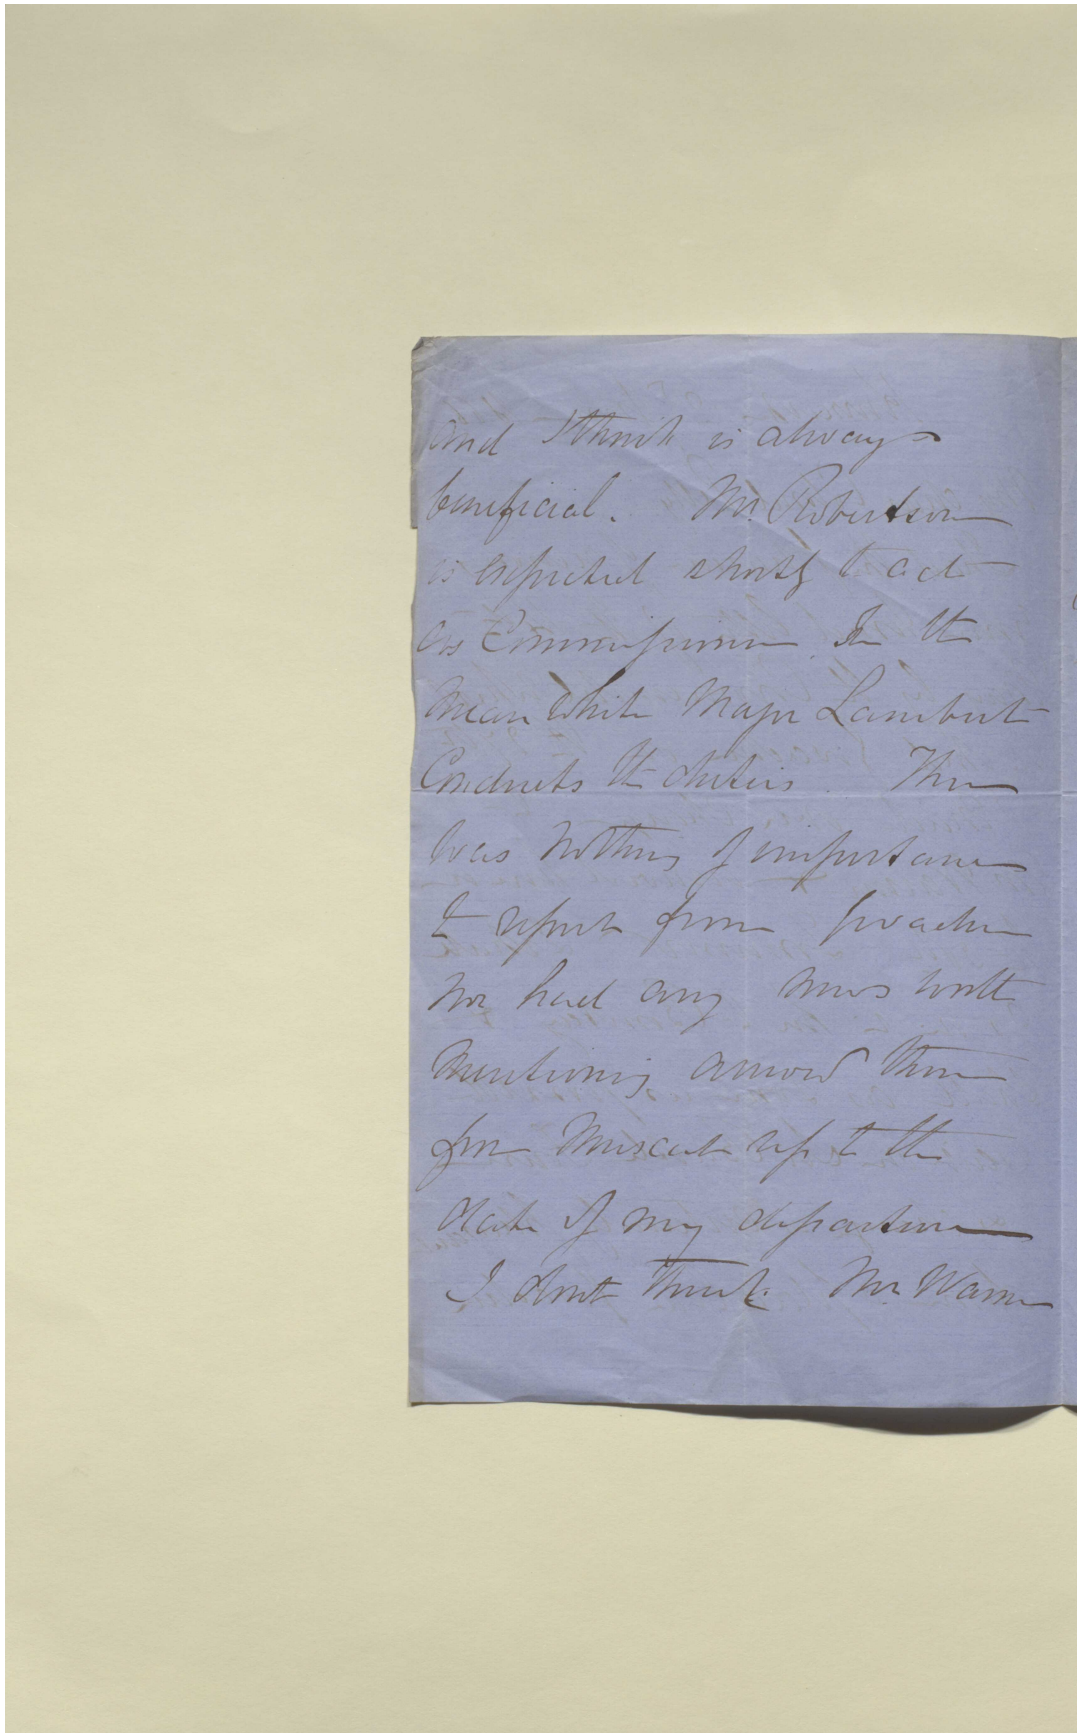 and I think is always
beneficial. Mr. Robertson
is expected shortly to act
as Commissioner. In the
mean while Major Lambert
Conducts the duties. There
was nothing of importance
to report from
nor had any news worth
mentioning arrived there
from Muscat up to the
date of my departure
I dont think Mr Warm